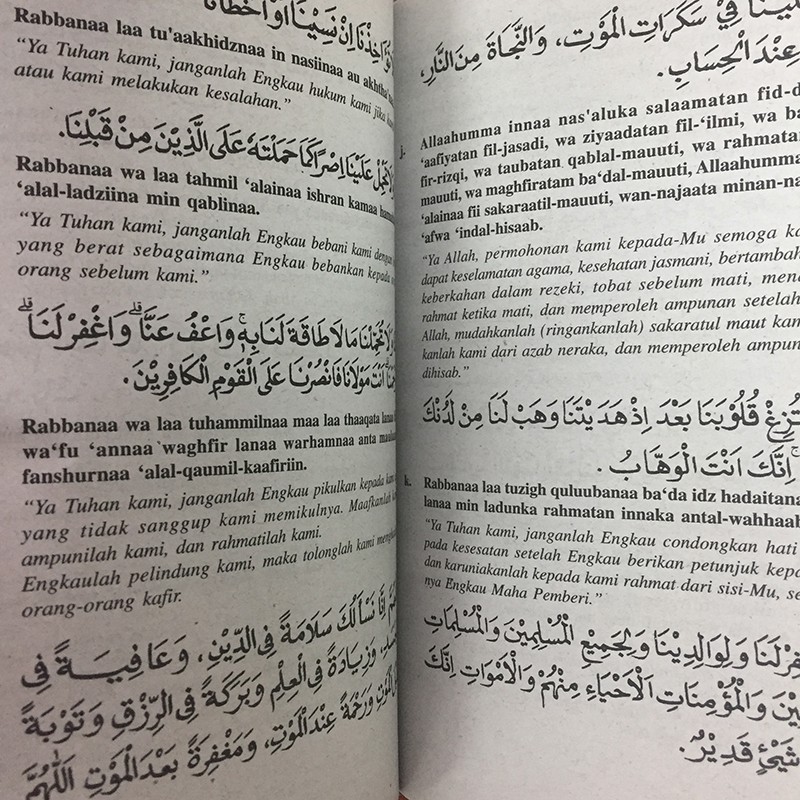 تُؤَاخِذْنَا اِنْ نَسِيْنَا اَوْ اَخْطَأْنَا
Rabbanaa laa tu'aakhidznaa in nasiinaa au akhtha'
"Ya Tuhan kami, janganlah Engkau hukum kami jika
atau kami melakukan kesalahan."
تَحْمِلْ عَلَيْنَا اِصْرًا كَمَا حَمَلْتَهُ عَلَى الَّذِيْنَ مِنْ قَبْلِنَا.
Rabbanaa wa laa tahmil 'alainaa ishran kamaa ham
'alal-ladziina min qablinaa.
"Ya Tuhan kami, janganlah Engkau bebani kami dengan
yang berat sebagaimana Engkau bebankan kepada
orang sebelum kami."
وَلَا تُحَمِّلْنَا مَا لَا طَاقَةَ لَنَا بِهٖ وَاعْفُ عَنَّا وَاغْفِرْ لَنَا
اَنْتَ مَوْلَانَا فَانْصُرْنَا عَلَى الْقَوْمِ الْكَافِرِيْنَ.
Rabbanaa wa laa tuhammilnaa maa laa thaaqata lanaa
wa'fu 'annaa waghfir lanaa warhamnaa anta maula
fanshurnaa 'alal-qaumil-kaafiriin.
"Ya Tuhan kami, janganlah Engkau pikulkan kepada
yang tidak sanggup kami memikulnya. Maafkanlah
ampunilah kami, dan rahmatilah kami.
Engkaulah pelindung kami, maka tolonglah kami
orang-orang kafir.
اِنَّا نَسْأَلُكَ سَلَامَةً فِى الدِّيْنِ، وَعَافِيَةً فِى
وَزِيَادَةً فِى الْعِلْمِ وَبَرَكَةً فِى الرِّزْقِ وَتَوْبَةً
الْمَوْتِ وَرَحْمَةً عِنْدَ الْمَوْتِ، وَمَغْفِرَةً بَعْدَ الْمَوْتِ اَللّٰهُمَّ
عَلَيْنَا فِيْ سَكَرَاتِ الْمَوْتِ، وَالنَّجَاةَ مِنَ النَّارِ،
عِنْدَ الْحِسَابِ.
j. Allaahumma innaa nas'aluka salaamatan fid-d
'aafiyatan fil-jasadi, wa ziyaadatan fil-'ilmi, wa ba
fir-rizqi, wa taubatan qablal-mauuti, wa rahmata
mauuti, wa maghfiratam ba'dal-mauuti, Allaahumma
'alainaa fii sakaraatil-mauuti, wan-najaata minan-na
'afwa 'indal-hisaab.
"Ya Allah, permohonan kami kepada-Mu semoga ka
dapat keselamatan agama, kesehatan jasmani, bertambah
keberkahan dalam rezeki, tobat sebelum mati, men
rahmat ketika mati, dan memperoleh ampunan setelah
Allah, mudahkanlah (ringankanlah) sakaratul maut kam
kanlah kami dari azab neraka, dan memperoleh ampun
dihisab."
تُزِغْ قُلُوْبَنَا بَعْدَ اِذْ هَدَيْتَنَا وَهَبْ لَنَا مِنْ لَدُنْكَ
اِنَّكَ اَنْتَ الْوَهَّابُ.
k. Rabbanaa laa tuzigh quluubanaa ba'da idz hadaitana
lanaa min ladunka rahmatan innaka antal-wahhaab
"Ya Tuhan kami, janganlah Engkau condongkan hati
pada kesesatan setelah Engkau berikan petunjuk kepa
dan karuniakanlah kepada kami rahmat dari sisi-Mu, se
nya Engkau Maha Pemberi."
لَنَا وَلِوَالِدِيْنَا وَلِجَمِيْعِ الْمُسْلِمِيْنَ وَالْمُسْلِمَاتِ
وَالْمُؤْمِنَاتِ اَلْاَحْيَاءِ مِنْهُمْ وَالْاَمْوَاتِ اِنَّكَ
شَيْئٍ قَدِيْرٌ.